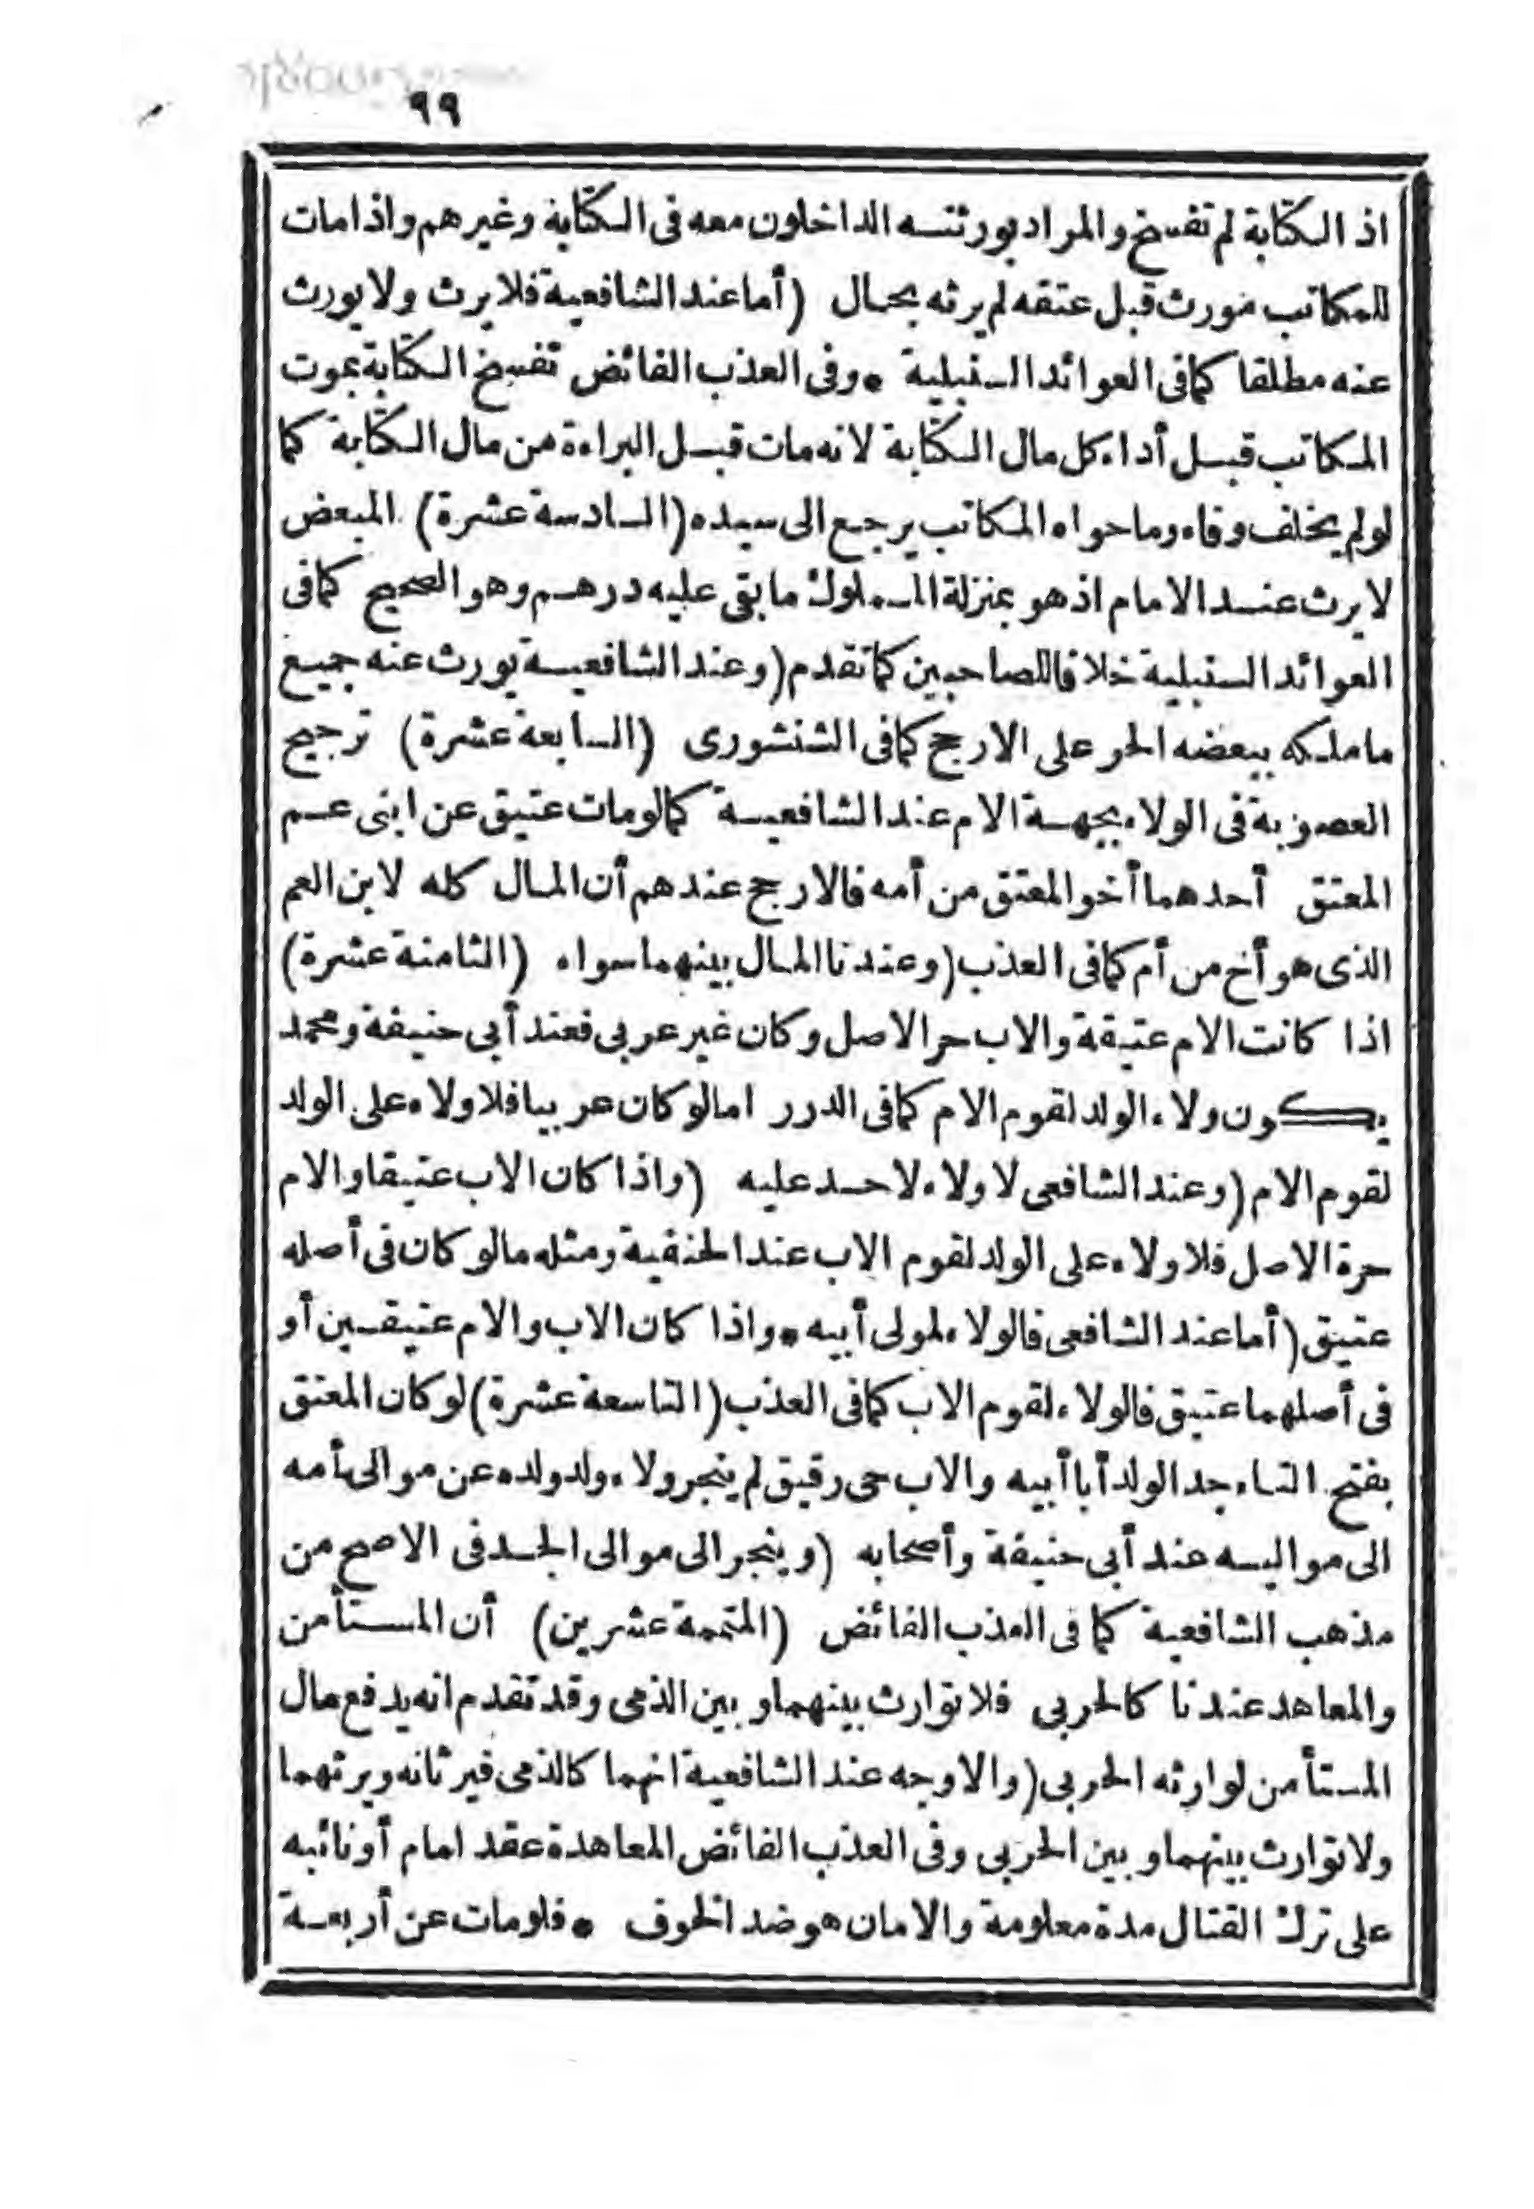 ٩٩
اذ الكتابة لم تنفسخ والمراد بورثته الداخلون معه فى الكتابة وغيرهم واذا مات
للمكاتب مورث قبل عتقه لم يرثه بحال (أما عند الشافعية فلا يرث ولا يورث
عنه مطلقا كما فى العوائد السنبلية * وفى العذب الفائض تنفسخ الكتابة بموت
المكاتب قبل أداء كل مال الكتابة لانه مات قبل البراءة من مال الكتابة كما
لو لم يخلف وفاء وما حواه المكاتب يرجع الى سيده (السادسة عشرة) المبعض
لا يرث عند الامام اذ هو بمنزلة المملوك ما بقى عليه درهم وهو الصحيح كما فى
العوائد السنبلية خلافا للصاحبين كما تقدم (وعند الشافعية يورث عنه جميع
ما ملكه ببعضه الحر على الارجح كما فى الشنشورى (السابعة عشرة) ترجيح
العصوبة فى الولاء بجهة الام عند الشافعية كما لو مات عتيق عن ابنى عم
المعتق أحدهما أخو المعتق من أمه فالارجح عندهم أن المال كله لابن العم
الذى هو أخ من أم كما فى العذب (وعندنا المال بينهما سواء (الثامنة عشرة)
اذا كانت الام عتيقة والاب حر الاصل وكان غير عربى فعند أبى حنيفة ومحمد
يكون ولاء الولد لقوم الام كما فى الدرر اما لو كان عربيا فلا ولاء على الولد
لقوم الام (وعند الشافعى لا ولاء لاحد عليه (واذا كان الاب عتيقا والام
حرة الاصل فلا ولاء على الولد لقوم الاب عند الحنفية ومثله ما لو كان فى أصله
عتيق (أما عند الشافعى فالولاء لمولى أبيه * واذا كان الاب والام عتيقين أو
فى أصلهما عتيق فالولاء لقوم الاب كما فى العذب (التاسعة عشرة) لو كان المعتق
بفتح التاء جد الولد أبا أبيه والاب حى رقيق لم ينجر ولاء ولد ولده عن موالى أمه
الى مواليه عند أبى حنيفة وأصحابه (وينجر الى موالى الجد فى الاصح من
مذهب الشافعية كما فى العذب الفائض (المتممة عشرين) أن المستأمن
والمعاهد عندنا كالحربى فلا توارث بينهما وبين الذمى وقد تقدم انه يدفع مال
المستأمن لوارثه الحربى (والاوجه عند الشافعية انهما كالذمى فيرثانه ويرثهما
ولا توارث بينهما وبين الحربى وفى العذب الفائض المعاهدة عقد امام أو نائبه
على ترك القتال مدة معلومة والامان هو ضد الخوف * فلو مات عن أربعة